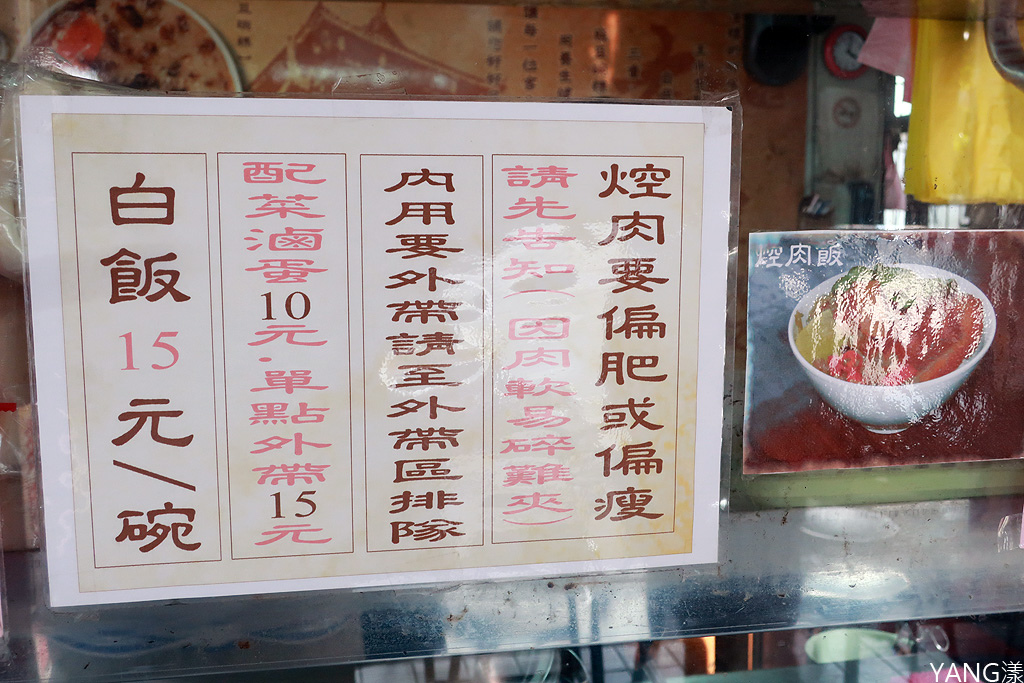 焢肉要偏肥或偏瘦
請先告知(因肉軟易碎難夾)
內用要外帶請至外帶區排隊
配菜滷蛋10元.單點外帶15元
白飯15元/碗
焢肉飯
YANG漾